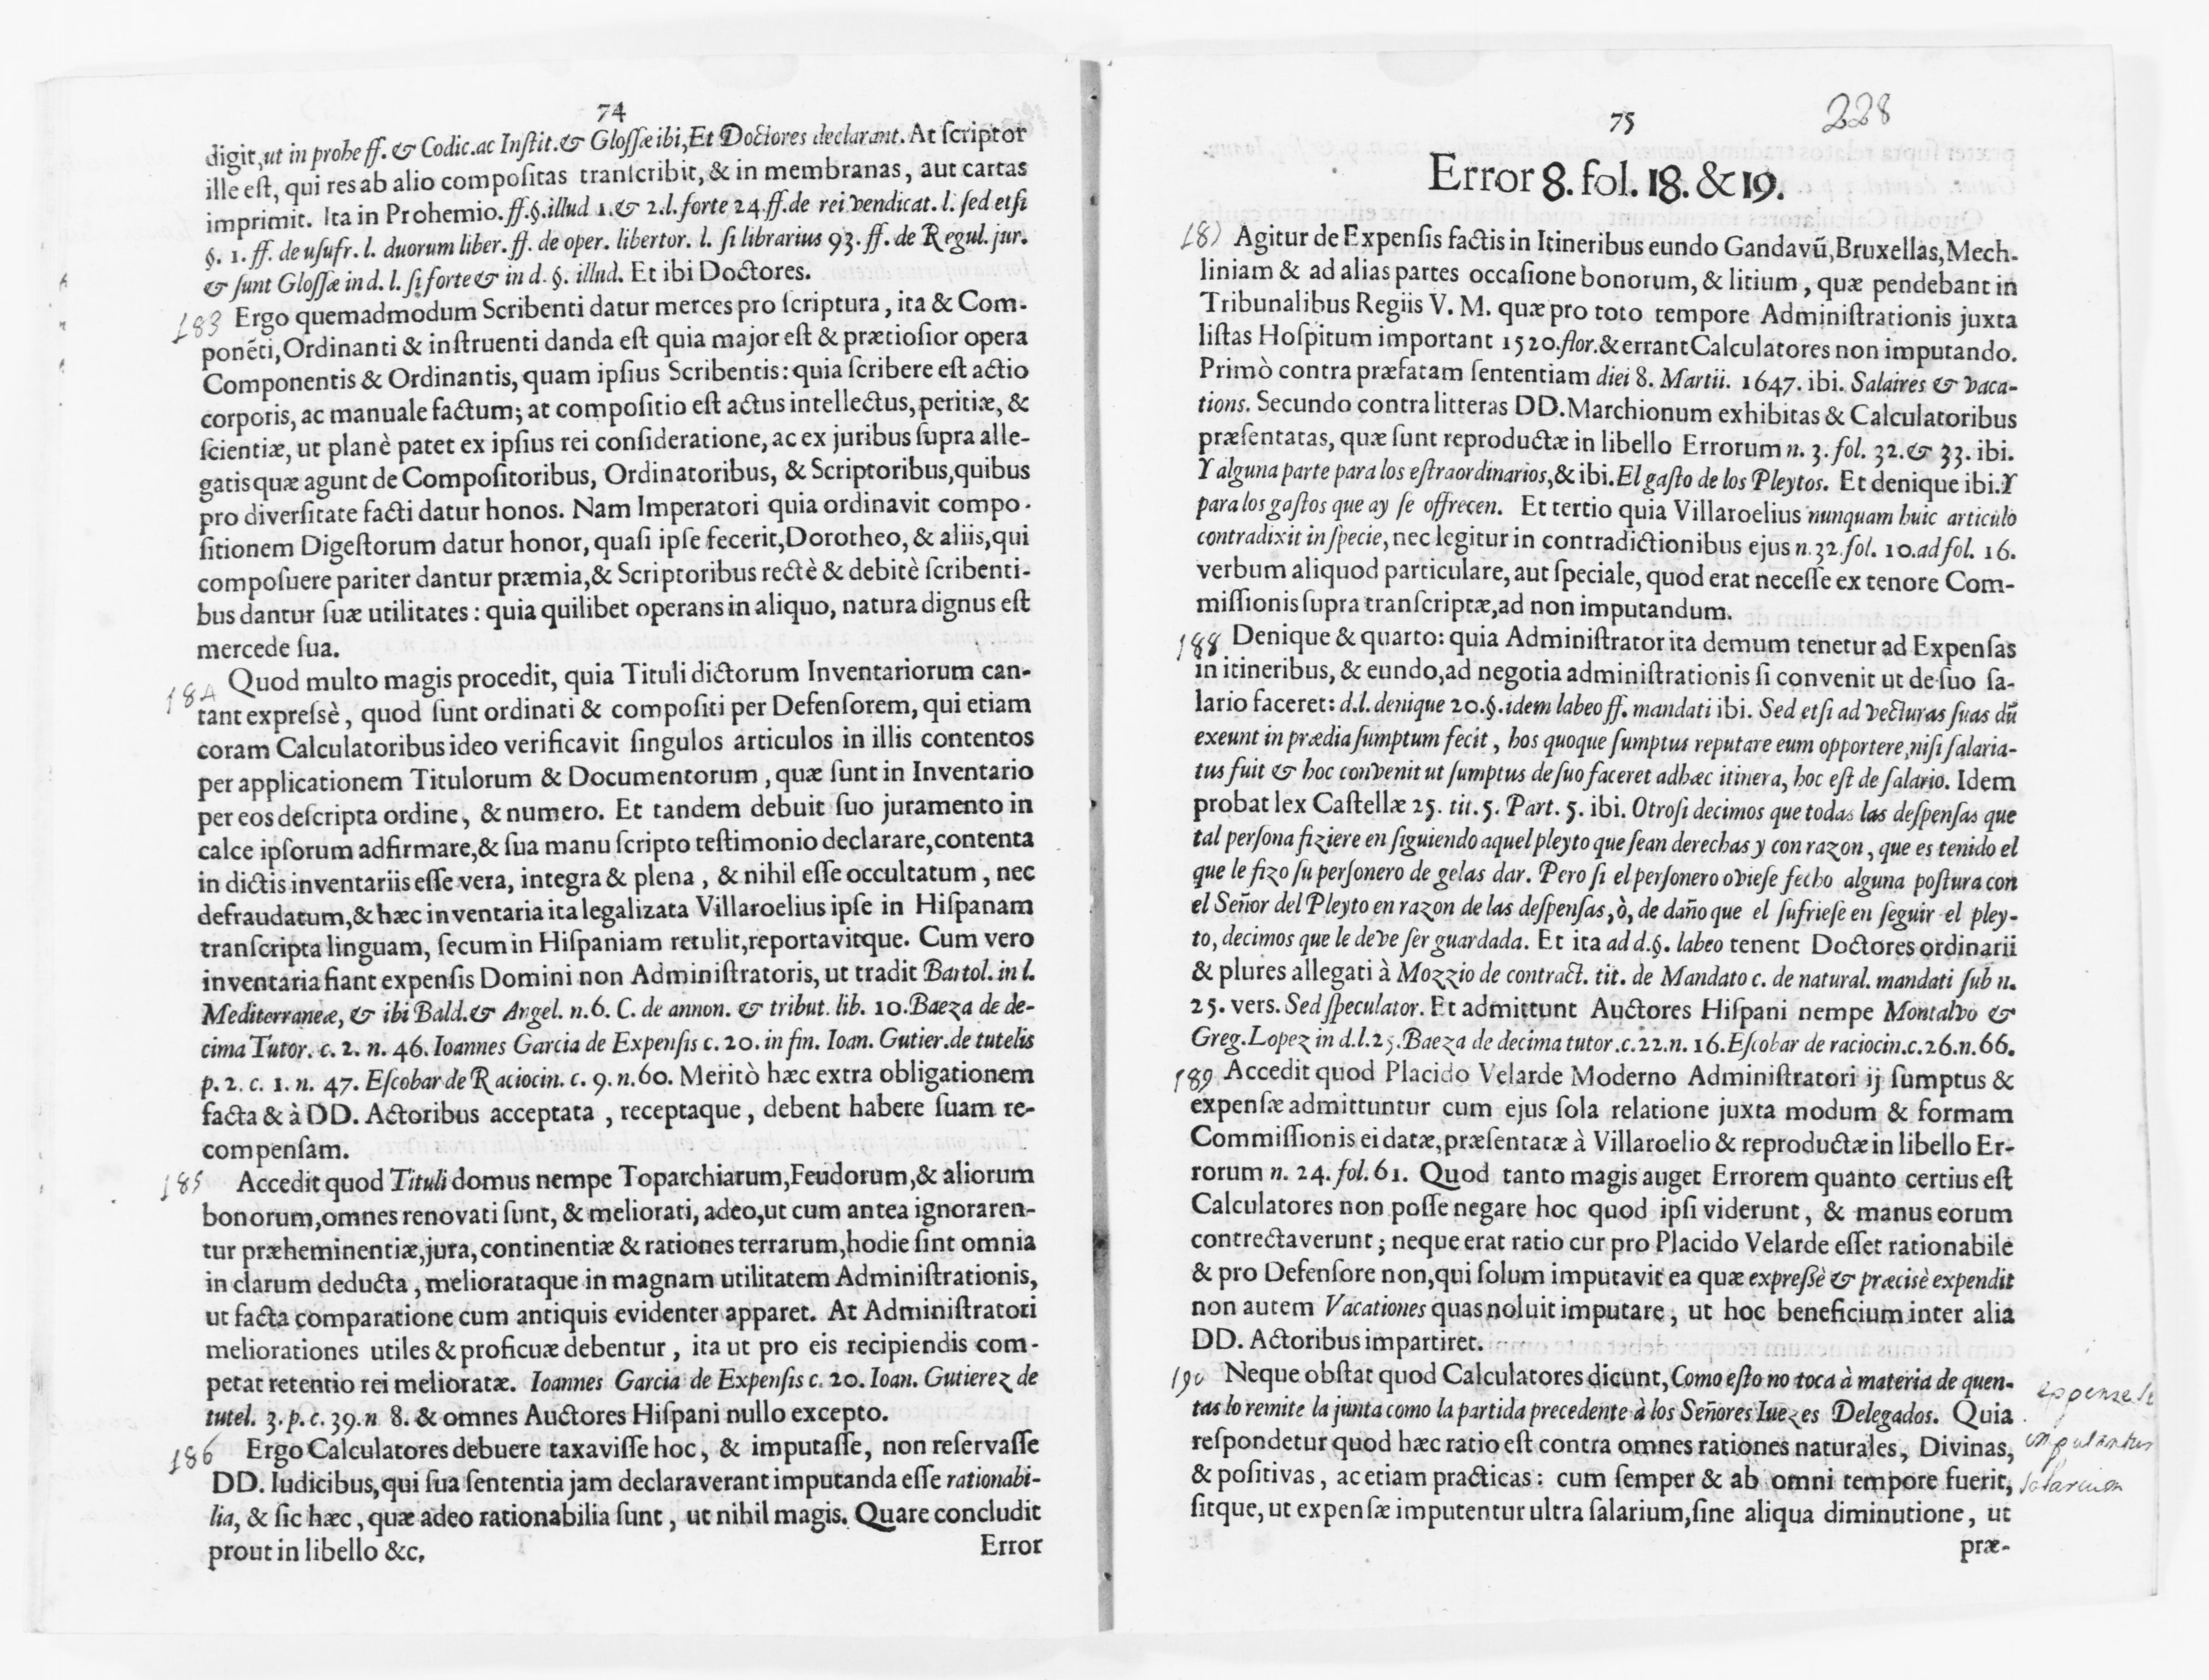 74
digit, ut in prohe ff. & Codic. ac Instit. & Glossæ ibi, Et Doctores declarant. At scriptor
ille est, qui res ab alio compositas transcribit, & in membranas, aut cartas
imprimit. Ita in Prohemio. ff. §. illud 1. & 2. l. forte 24. ff. de rei vendicat. l. sed etsi
§. 1. ff. de usufr. l. duorum liber. ff. de oper. libertor. l. si librarius 93. ff. de Regul. jur.
& sunt Glossæ in d. l. si forte & in d. §. illud. Et ibi Doctores.
183 Ergo quemadmodum Scribenti datur merces pro scriptura, ita & Com-
ponẽti, Ordinanti & instruenti danda est quia major est & prætiosior opera
Componentis & Ordinantis, quam ipsius Scribentis: quia scribere est actio
corporis, ac manuale factum; at compositio est actus intellectus, peritiæ, &
scientiæ, ut planè patet ex ipsius rei consideratione, ac ex juribus supra alle-
gatis quæ agunt de Compositoribus, Ordinatoribus, & Scriptoribus, quibus
pro diversitate facti datur honos. Nam Imperatori quia ordinavit compo-
sitionem Digestorum datur honor, quasi ipse fecerit, Dorotheo, & aliis, qui
composuere pariter dantur præmia, & Scriptoribus rectè & debitè scribenti-
bus dantur suæ utilitates: quia quilibet operans in aliquo, natura dignus est
mercede sua.
184 Quod multo magis procedit, quia Tituli dictorum Inventariorum can-
tant expressè, quod sunt ordinati & compositi per Defensorem, qui etiam
coram Calculatoribus ideo verificavit singulos articulos in illis contentos
per applicationem Titulorum & Documentorum, quæ sunt in Inventario
per eos descripta ordine, & numero. Et tandem debuit suo juramento in
calce ipsorum adfirmare, & sua manu scripto testimonio declarare, contenta
in dictis inventariis esse vera, integra & plena, & nihil esse occultatum, nec
defraudatum, & hæc inventaria ita legalizata Villaroelius ipse in Hispanam
transcripta linguam, secum in Hispaniam retulit, reportavitque. Cum vero
inventaria fiant expensis Domini non Administratoris, ut tradit Bartol. in l.
Mediterraneæ, & ibi Bald. & Angel. n. 6. C. de annon. & tribut. lib. 10. Baeza de de-
cima Tutor. c. 2. n. 46. Ioannes Garcia de Expensis c. 20. in fin. Ioan. Gutier. de tutelis
p. 2. c. 1. n. 47. Escobar de Raciocin. c. 9. n. 60. Meritò hæc extra obligationem
facta & à DD. Actoribus acceptata, receptaque, debent habere suam re-
compensam.
185 Accedit quod Tituli domus nempe Toparchiarum, Feudorum, & aliorum
bonorum, omnes renovati sunt, & meliorati, adeo, ut cum antea ignoraren-
tur præheminentiæ, jura, continentiæ & rationes terrarum, hodie sint omnia
in clarum deducta, meliorataque in magnam utilitatem Administrationis,
ut facta comparatione cum antiquis evidenter apparet. At Administratori
meliorationes utiles & proficuæ debentur, ita ut pro eis recipiendis com-
petat retentio rei melioratæ. Ioannes Garcia de Expensis c. 20. Ioan. Gutierez de
tutel. 3. p. c. 39. n 8. & omnes Auctores Hispani nullo excepto.
186 Ergo Calculatores debuere taxavisse hoc, & imputasse, non reservasse
DD. Iudicibus, qui sua sententia jam declaraverant imputanda esse rationabi-
lia, & sic hæc, quæ adeo rationabilia sunt, ut nihil magis. Quare concludit
prout in libello &c.
Error
75
228
Error 8. fol. 18. & 19.
187 Agitur de Expensis factis in Itineribus eundo Gandavũ, Bruxellas, Mech-
liniam & ad alias partes occasione bonorum, & litium, quæ pendebant in
Tribunalibus Regiis V. M. quæ pro toto tempore Administrationis juxta
listas Hospitum important 1520. flor. & errant Calculatores non imputando.
Primò contra præfatam sententiam diei 8. Martii. 1647. ibi. Salaires & vaca-
tions. Secundo contra litteras DD. Marchionum exhibitas & Calculatoribus
præsentatas, quæ sunt reproductæ in libello Errorum n. 3. fol. 32. & 33. ibi.
Y alguna parte para los estraordinarios, & ibi. El gasto de los Pleytos. Et denique ibi. Y
para los gastos que ay se offrecen. Et tertio quia Villaroelius nunquam huic articulo
contradixit in specie, nec legitur in contradictionibus ejus n. 32. fol. 10. ad fol. 16.
verbum aliquod particulare, aut speciale, quod erat necesse ex tenore Com-
missionis supra transcriptæ, ad non imputandum.
188 Denique & quarto: quia Administrator ita demum tenetur ad Expensas
in itineribus, & eundo, ad negotia administrationis si convenit ut de suo sa-
lario faceret: d. l. denique 20. §. idem labeo ff. mandati ibi. Sed etsi ad vecturas suas dũ
exeunt in prædia sumptum fecit, hos quoque sumptus reputare eum opportere, nisi salaria-
tus fuit & hoc convenit ut sumptus de suo faceret adhæc itinera, hoc est de salario. Idem
probat lex Castellæ 25. tit. 5. Part. 5. ibi. Otrosi decimos que todas las despensas que
tal persona fiziere en siguiendo aquel pleyto que sean derechas y con razon, que es tenido el
que le fizo su personero de gelas dar. Pero si el personero oviese fecho alguna postura con
el Señor del Pleyto en razon de las despensas, ò, de daño que el sufriese en seguir el pley-
to, decimos que le deve ser guardada. Et ita ad d. §. labeo tenent Doctores ordinarii
& plures allegati à Mozzio de contract. tit. de Mandato c. de natural. mandati sub n.
25. vers. Sed speculator. Et admittunt Auctores Hispani nempe Montalvo &
Greg. Lopez in d. l. 25. Baeza de decima tutor. c. 22. n. 16. Escobar de raciocin. c. 26. n. 66.
189 Accedit quod Placido Velarde Moderno Administratori ij sumptus &
expensæ admittuntur cum ejus sola relatione juxta modum & formam
Commissionis ei datæ, præsentatæ à Villaroelio & reproductæ in libello Er-
rorum n. 24. fol. 61. Quod tanto magis auget Errorem quanto certius est
Calculatores non posse negare hoc quod ipsi viderunt, & manus eorum
contrectaverunt; neque erat ratio cur pro Placido Velarde esset rationabile
& pro Defensore non, qui solum imputavit ea quæ expressè & præcisè expendit
non autem Vacationes quas noluit imputare, ut hoc beneficium inter alia
DD. Actoribus impartiret.
190 Neque obstat quod Calculatores dicunt, Como esto no toca à materia de quen-
tas lo remite la junta como la partida precedente à los Señores Iuezes Delegados. Quia
respondetur quod hæc ratio est contra omnes rationes naturales, Divinas,
& positivas, ac etiam practicas: cum semper & ab omni tempore fuerit,
sitque, ut expensæ imputentur ultra salarium, sine aliqua diminutione, ut
præ-